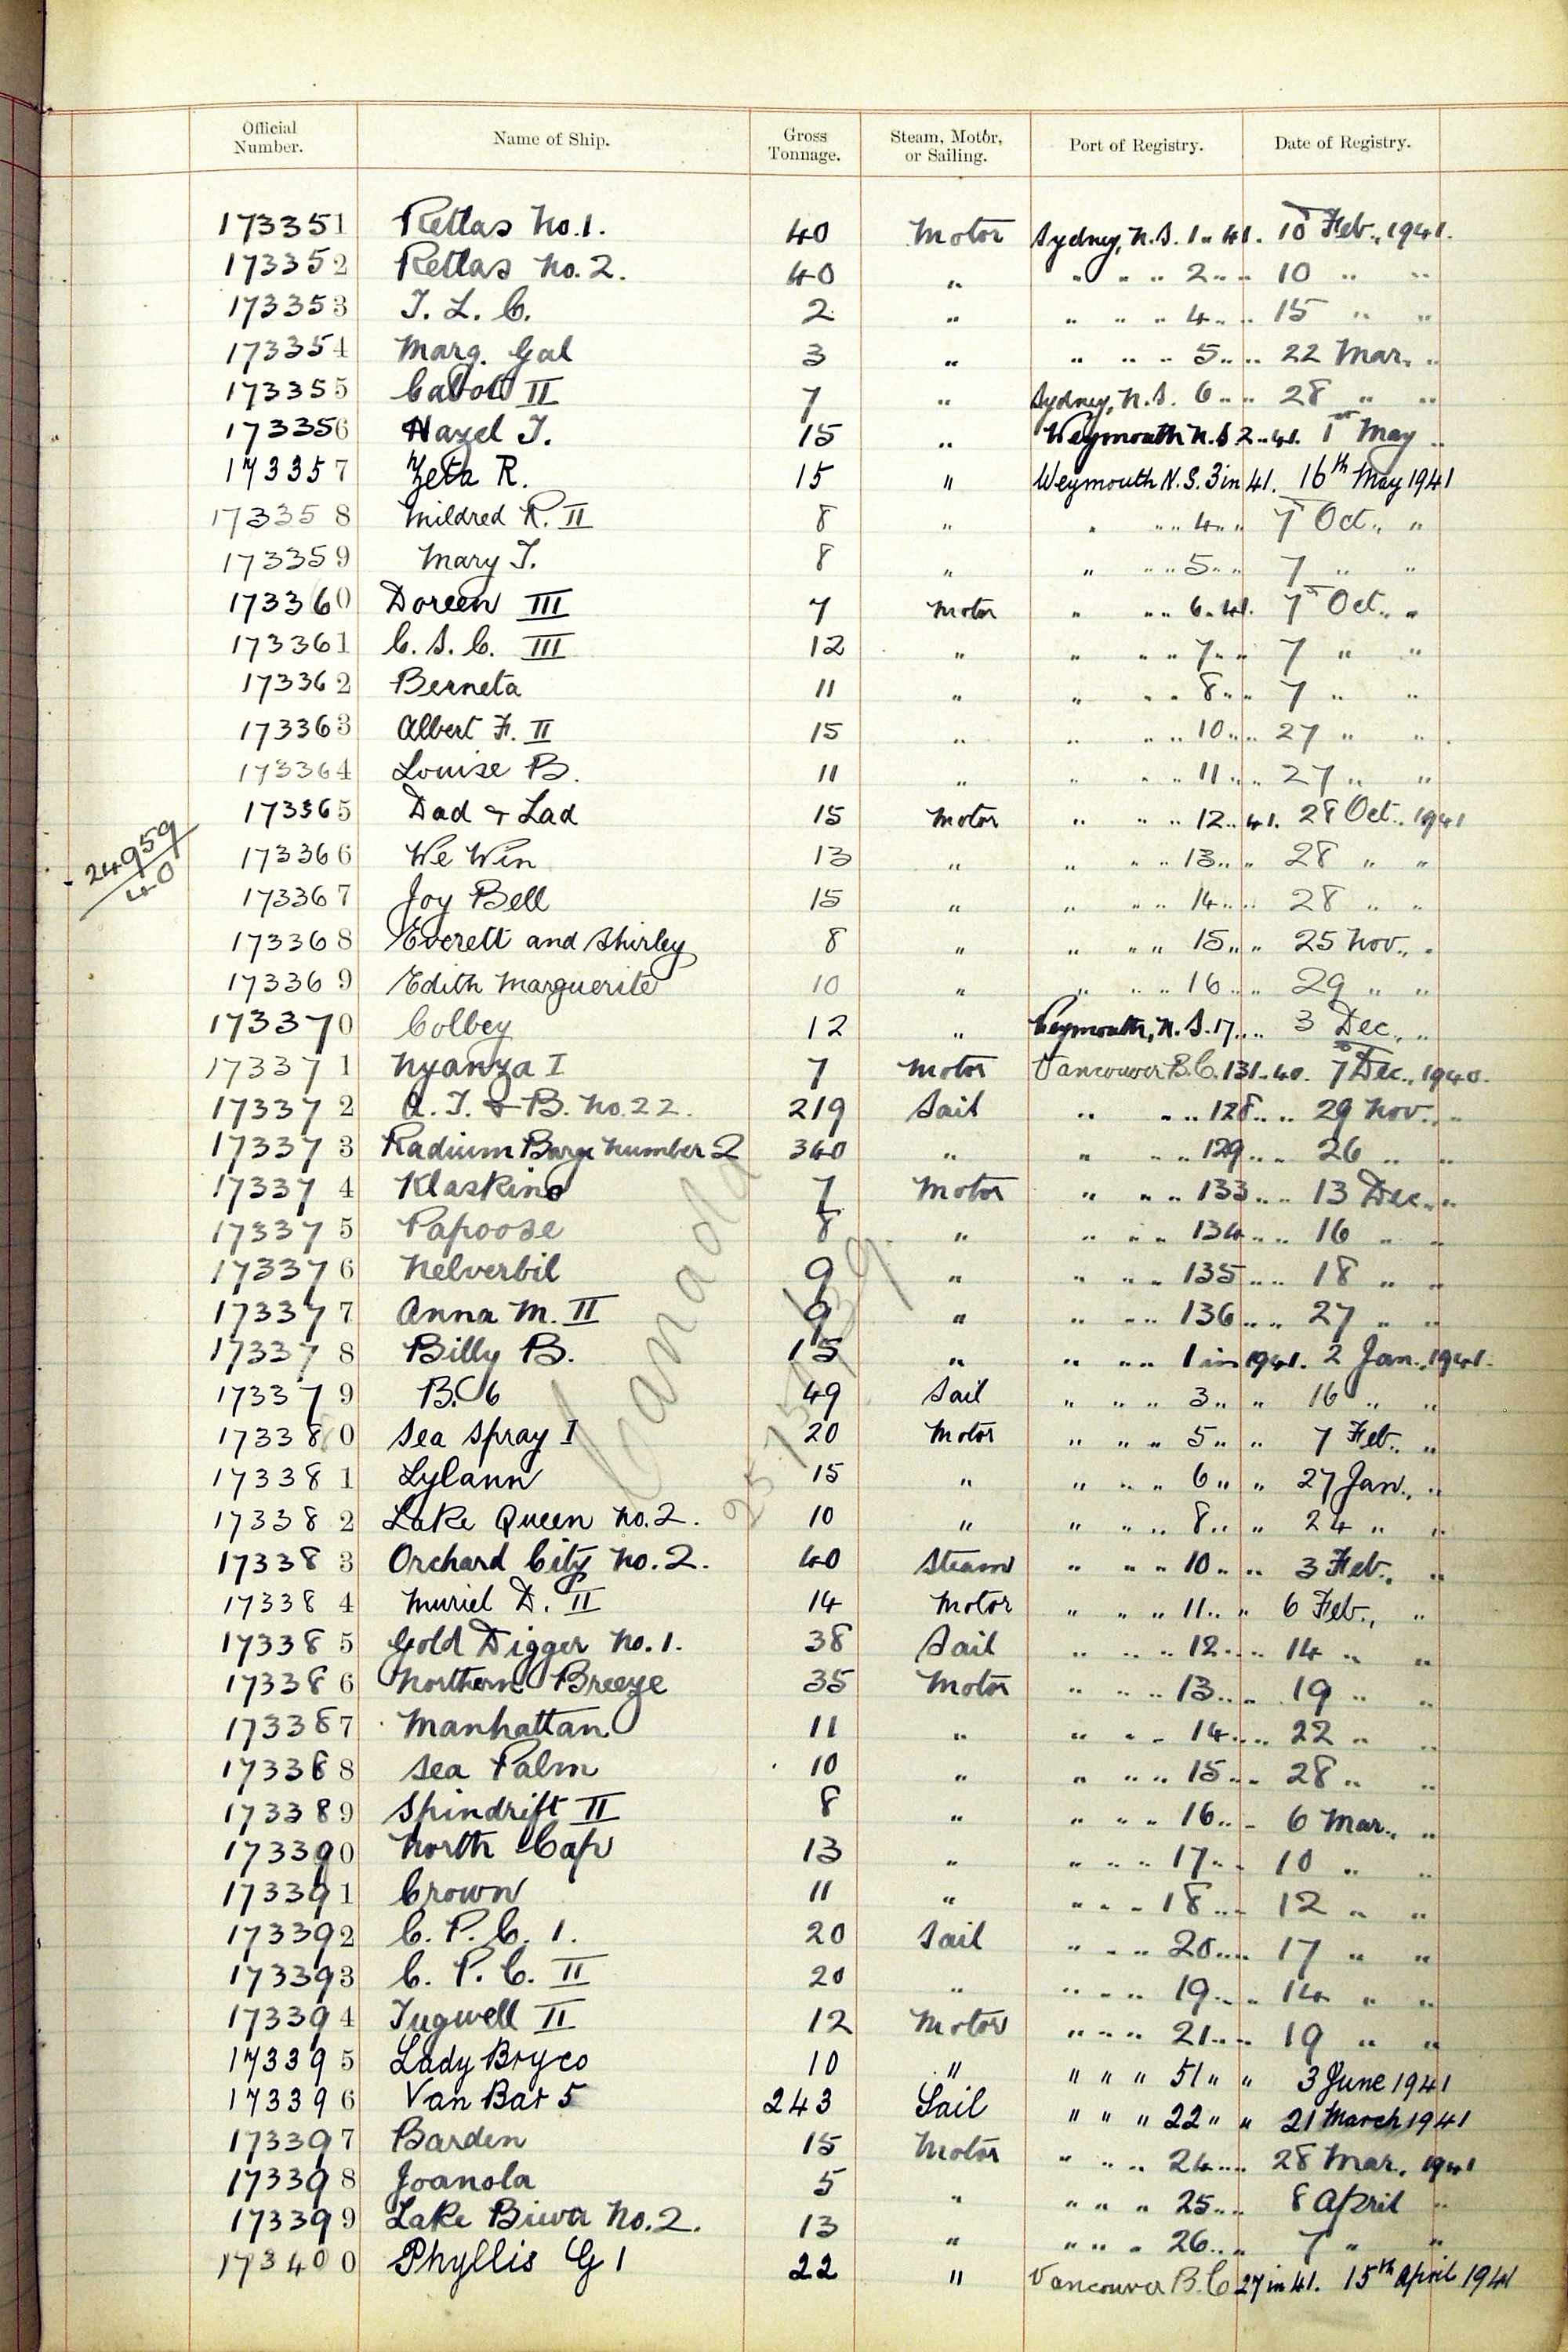 Official Number. Name of Ship. Gross Tonnage. Steam, Motor, or Sailing. Port of Registry. Date of Registry.
173351 Rettas No. 1. 40 Motor Sydney, N.S. 1 " 41. 10 Feb., 1941.
173352 Rettas No. 2. 40 " " " " 2 " " 10 " "
173353 T. L. C. 2 " " " " 4 " " 15 " "
173354 Marg. Gal 3 " " " " 5 " " 22 Mar. "
173355 Cabot II 7 " Sydney, N.S. 6 " " 28 " "
173356 Hazel T. 15 " Weymouth N.S 2 " 41. 1st May "
173357 Zeta R. 15 " Weymouth N.S. 3 in 41. 16th May 1941
173358 Mildred R. II 8 " " " " 4 " " 7 Oct., "
173359 Mary T. 8 " " " " 5 " " 7 " "
173360 Doreen III 7 Motor " " " 6 " 41. 7 Oct., "
173361 C. S. C. III 12 " " " " 7 " " 7 " "
173362 Berneta 11 " " " " 8 " " 7 " "
173363 Albert F. II 15 " " " " 10 " " 27 " "
173364 Louise B. 11 " " " " 11 " " 27 " "
173365 Dad & Lad 15 Motor " " " 12 " 41. 28 Oct., 1941
24959/40
173366 We Win 13 " " " " 13 " " 28 " "
173367 Joy Bell 15 " " " " 14 " " 28 " "
173368 Everett and Shirley 8 " " " " 15 " " 25 Nov., "
173369 Edith Marguerite 10 " " " " 16 " " 29 " "
173370 Colbey 12 " Weymouth, N.S. 17 " " 3 Dec., "
173371 Nyanza I 7 Motor Vancouver B.C. 131 " 40. 7 Dec., 1940.
173372 A. T. & B. No. 22. 219 Sail " " " 128 " " 29 Nov., "
173373 Radium Barge Number 2 360 " " " " 129 " " 26 " "
173374 Klaskino 7 Motor " " " 133 " " 13 Dec., "
173375 Papoose 8 " " " " 134 " " 16 " "
173376 Nelverbil 9 " " " " 135 " " 18 " "
173377 Anna M. II 9 " " " " 136 " " 27 " "
173378 Billy B. 15 " " " " 1 in 1941. 2 Jan., 1941.
173379 B.C 6 49 Sail " " " 3 " " 16 " "
173380 Sea Spray I 20 Motor " " " 5 " " 7 Feb., "
Canada
173381 Lylann 15 " " " " 6 " " 27 Jan., "
173382 Lake Queen No. 2. 10 " " " " 8 " " 24 " "
173383 Orchard City No. 2. 40 Steam " " " 10 " " 3 Feb., "
173384 Muriel D. II 14 Motor " " " 11 " " 6 Feb., "
173385 Gold Digger No. 1. 38 Sail " " " 12 " " 14 " "
173386 Northern Breeze 35 Motor " " " 13 " " 19 " "
173387 Manhattan 11 " " " " 14 " " 22 " "
173388 Sea Palm 10 " " " " 15 " " 28 " "
173389 Spindrift II 8 " " " " 16 " " 6 Mar., "
173390 North Cap 13 " " " " 17 " " 10 " "
173391 Crown 11 " " " " 18 " " 12 " "
173392 C. P. C. 1. 20 Sail " " " 20 " " 17 " "
173393 C. P. C. II 20 " " " " 19 " " 14 " "
173394 Tugwell II 12 Motor " " " 21 " " 19 " "
173395 Lady Bryco 10 " " " " 51 " " 3 June 1941
173396 Van Bar 5 243 Sail " " " 22 " " 21 March 1941
173397 Barden 15 Motor " " " 24 " " 28 Mar. 1941
173398 Joanola 5 " " " " 25 " " 8 April "
173399 Lake Biwa No. 2. 13 " " " " 26 " " 7 " "
173400 Phyllis G 1 22 " Vancouver B.C 27 in 41. 15th April 1941